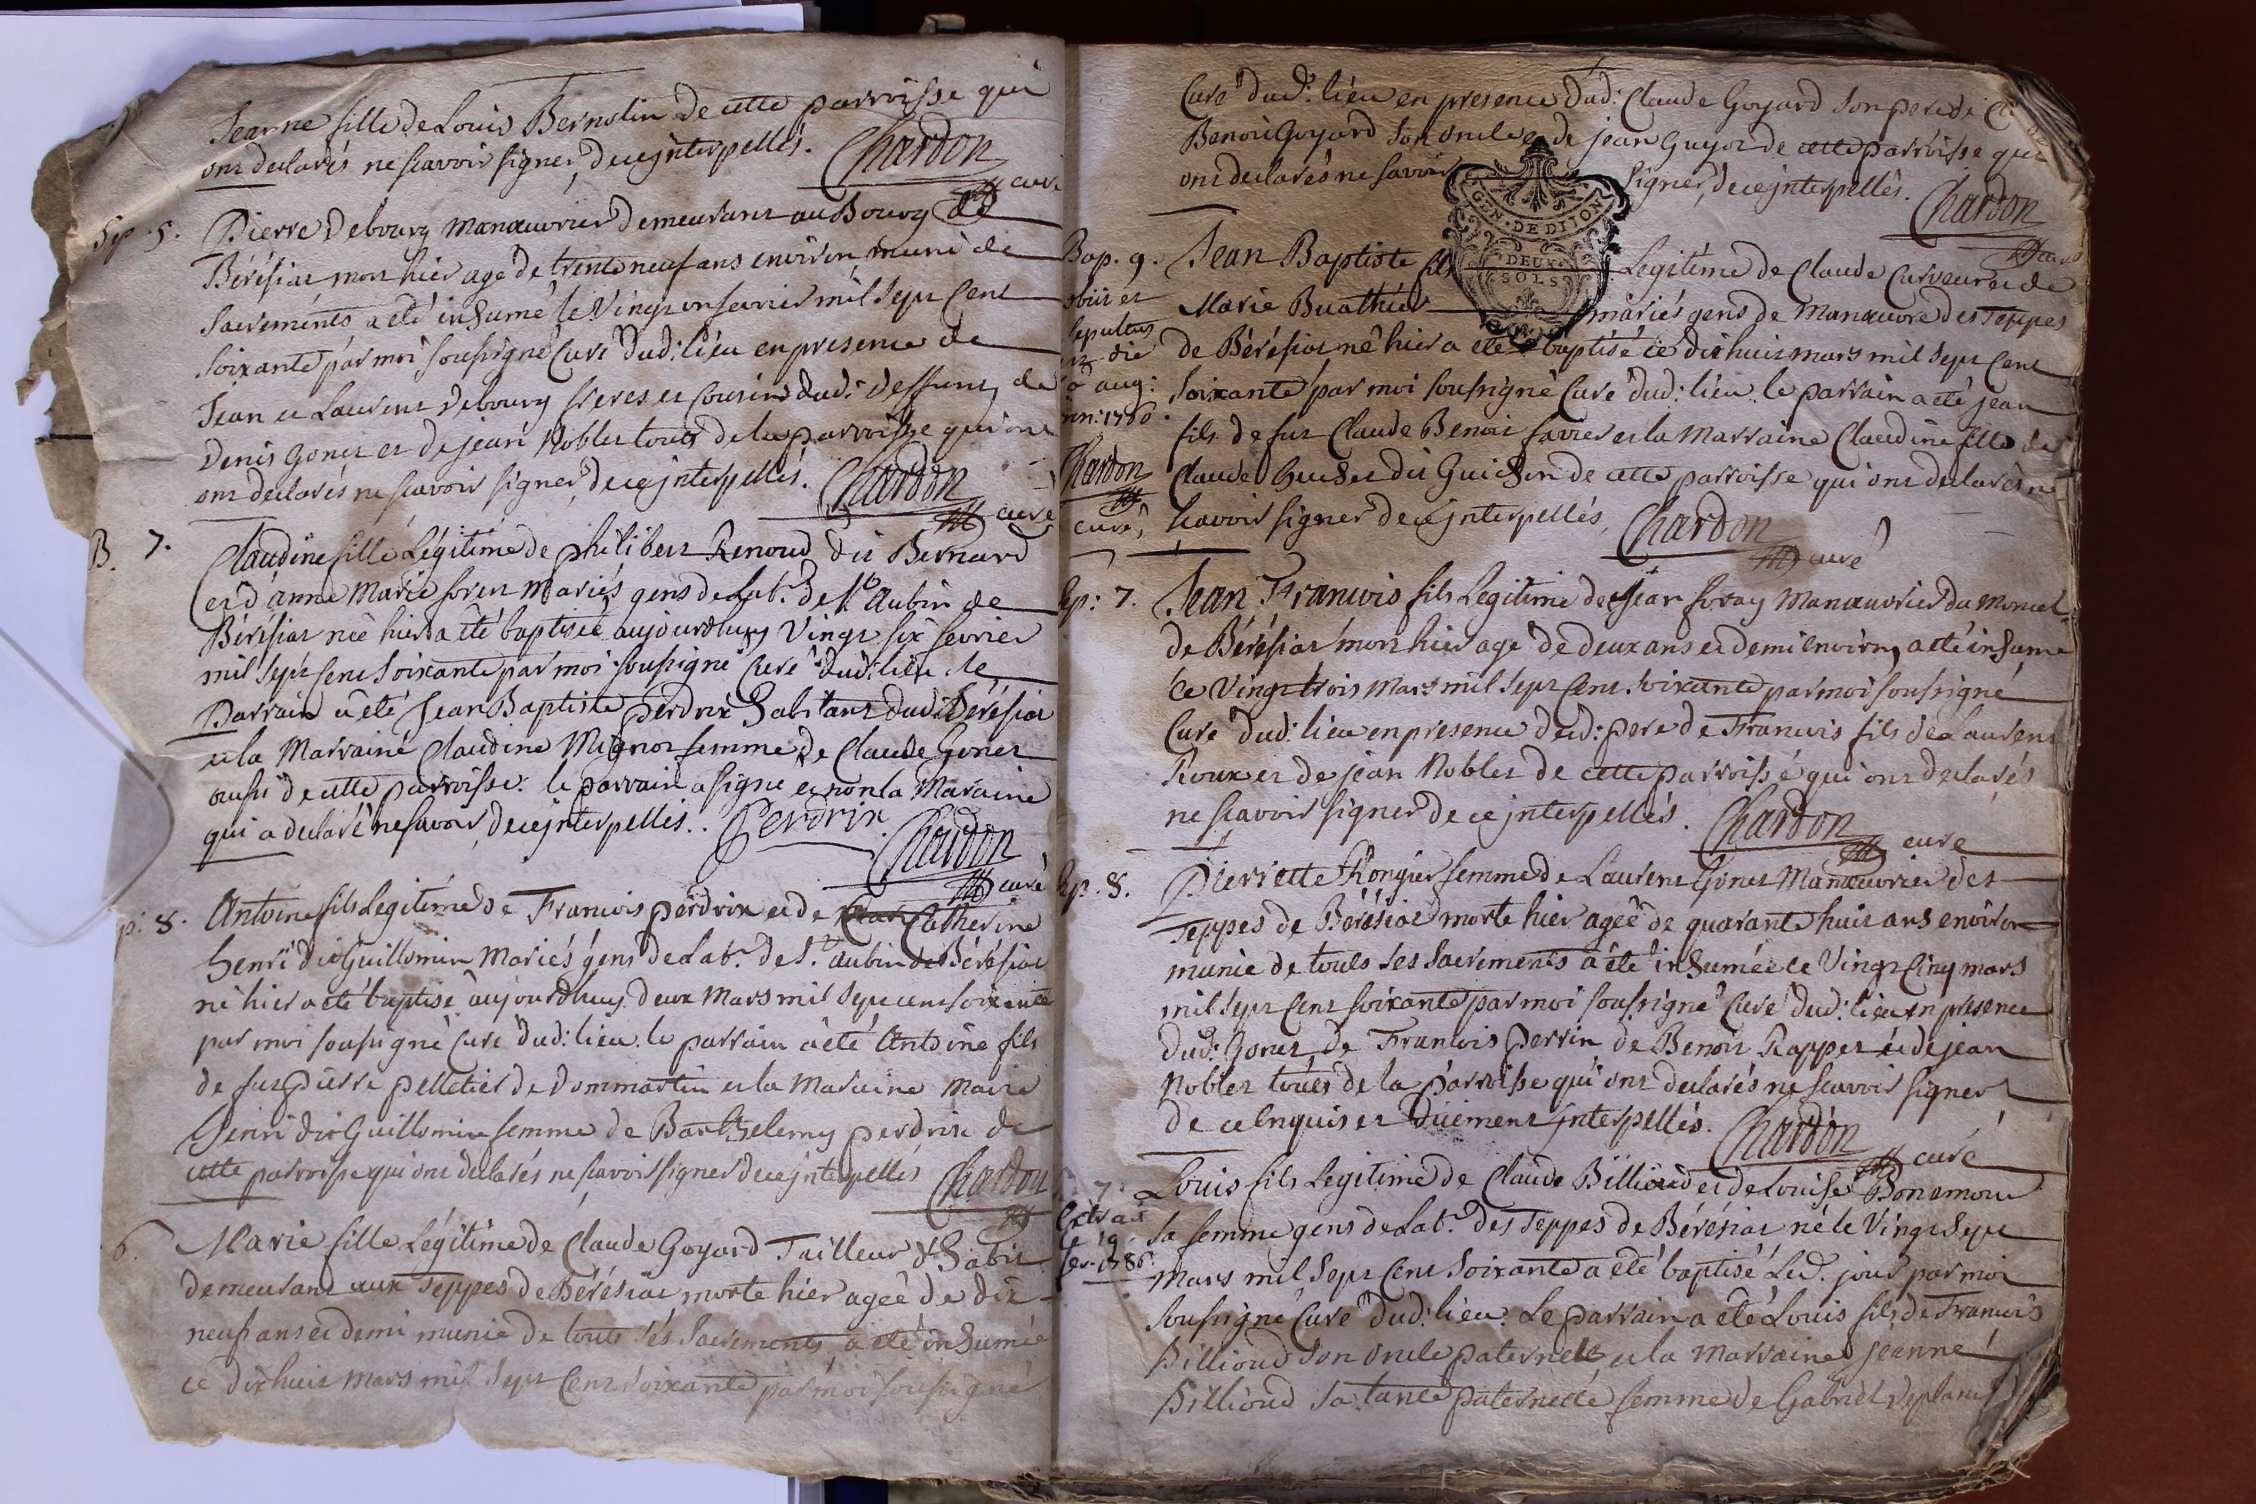 Jeanne fille de Louis Bernolin de cette parroisse qui
ont declarés ne scavoir signer, de ce jnterpellés. Chardon
curé
Sep. 5. Pierre Debourg manœuvrier demeurant au Bourg de
Bérésiat mort hier agé de trente neuf ans environ muni de
sacrements a été inhumé le vingt un fevrier mil sept cent
soixante par moi soussigné curé dud: lieu en presence de
Jean et Laurent Debourg freres et cousins dud: deffunt, de
Denis Gonet et de jean Noblet touts de la parroisse qui ont
ont declarés ne scavoir signer, de ce jnterpellés. Chardon
curé
B. 7. Claudine fille Légitime de philibert Renoud dit Bernard
et d'anne Marie foren mariés gens de Labr. de St Aubin de
Bérésiat née hier a été baptisée aujourdhuy vingt six fevrier
mil sept cent soixante par moi soussigné curé dud: lieu le
Parrain a été Jean Baptiste perdrix habitant dud: Bérésiat
et la Marraine Claudine Mignot femme de Claude Gonet
aussi de cette parroisse. le parrain a signé et non la Maraine
qui a declaré ne savoir, de ce jnterpellés.. Perdrix. Chardon
curé
p: 8. Antoine fils Legitime de Francois perdrix et de Catherine
henri dit Guillomin Mariés gens de Labr. de St. aubin de Bérésiat
né hier a été baptisé aujourdhuy deux Mars mil sept cent soixante
par moi soussigné curé dud: lieu. le parrain a été Antoine fils
de fut pierre pelletier de Dommartin et la Maraine Marie
henri dit Guillomin femme de Barthelemy perdrix de
cette parroisse qui ont declarés ne scavoir signer de ce jnterpellés Chardon
6. Marie fille Légitime de Claude Goyard Tailleur d'habit
demeurant aux Teppes de Bérésiat morte hier agée de dix
neuf ans et demi munie de touts ses sacrements a été inhumée
ce dix huit mars mil sept cent soixante par moi soussigné
curé dud: lieu en presence dud: Claude Goyard son pere de
Benoit Goyard son oncle et de jean Guyot de cette parroisse qui
ont declarés ne savoir signer, de ce jnterpellés. Chardon
curé
GEN. DE DIJON
DEUX
SOLS
Bap. 9. Jean Baptiste fils Legitime de Claude Curveur et de
obiit et Marie Buathier mariés gens de Manœuvre des Teppes
sepultus de Bérésiat né hier a été baptisé ce dix huit mars mil sept cent
die soixante par moi soussigné curé dud: lieu. le parrain a été jean
aug: fils de fut Claude Benoit favier et la Marraine Claudine fille de
1760. Claude huchet dit Guichon de cette parroisse qui ont declarés ne
Chardon scavoir signer de ce jnterpellés. Chardon
curé, curé
Sep: 7. Jean Francois fils Legitime de jean foray Manœuvrier du Moncel
de Bérésiat mort hier agé de deux ans et demi environ a été inhumé
ce vingt trois Mars mil sept cent soixante par moi soussigné
curé dud: lieu en presence dud: pere de Francois fils de Laurent
Roux et de jean Noblet de cette parroisse qui ont declarés
ne scavoir signer de ce jnterpellés. Chardon
curé
Sp. 8. Pierrette Rongier femme de Laurent Gonet Manœuvrier des
Teppes de Bérésiat morte hier agée de quarante huit ans environ
munie de touts ses sacrements a été inhumée ce vingt cinq mars
mil sept cent soixante par moi soussigné curé dud: lieu en presence
dud: Gonet, de Francois perrin de Benoit Rappet et de jean
Noblet touts de la parroisse qui ont declarés ne scavoir signer
de ce enquis et duement jnterpellés. Chardon
curé
7. Louis fils Legitime de Claude Billioud et de Louise Bonamour
Extrait sa femme gens de Labr. des Teppes de Bérésiat né le vingt sept
le 19. Mars mil sept cent soixante a été baptisé led. jour par moi
fev. 1786. soussigné curé dud: lieu. Le parrain a été Louis fils de Francois
Billioud son oncle paternel et la Marraine Jeanne
Billioud sa tante paternelle femme de Gabriel Deplanche